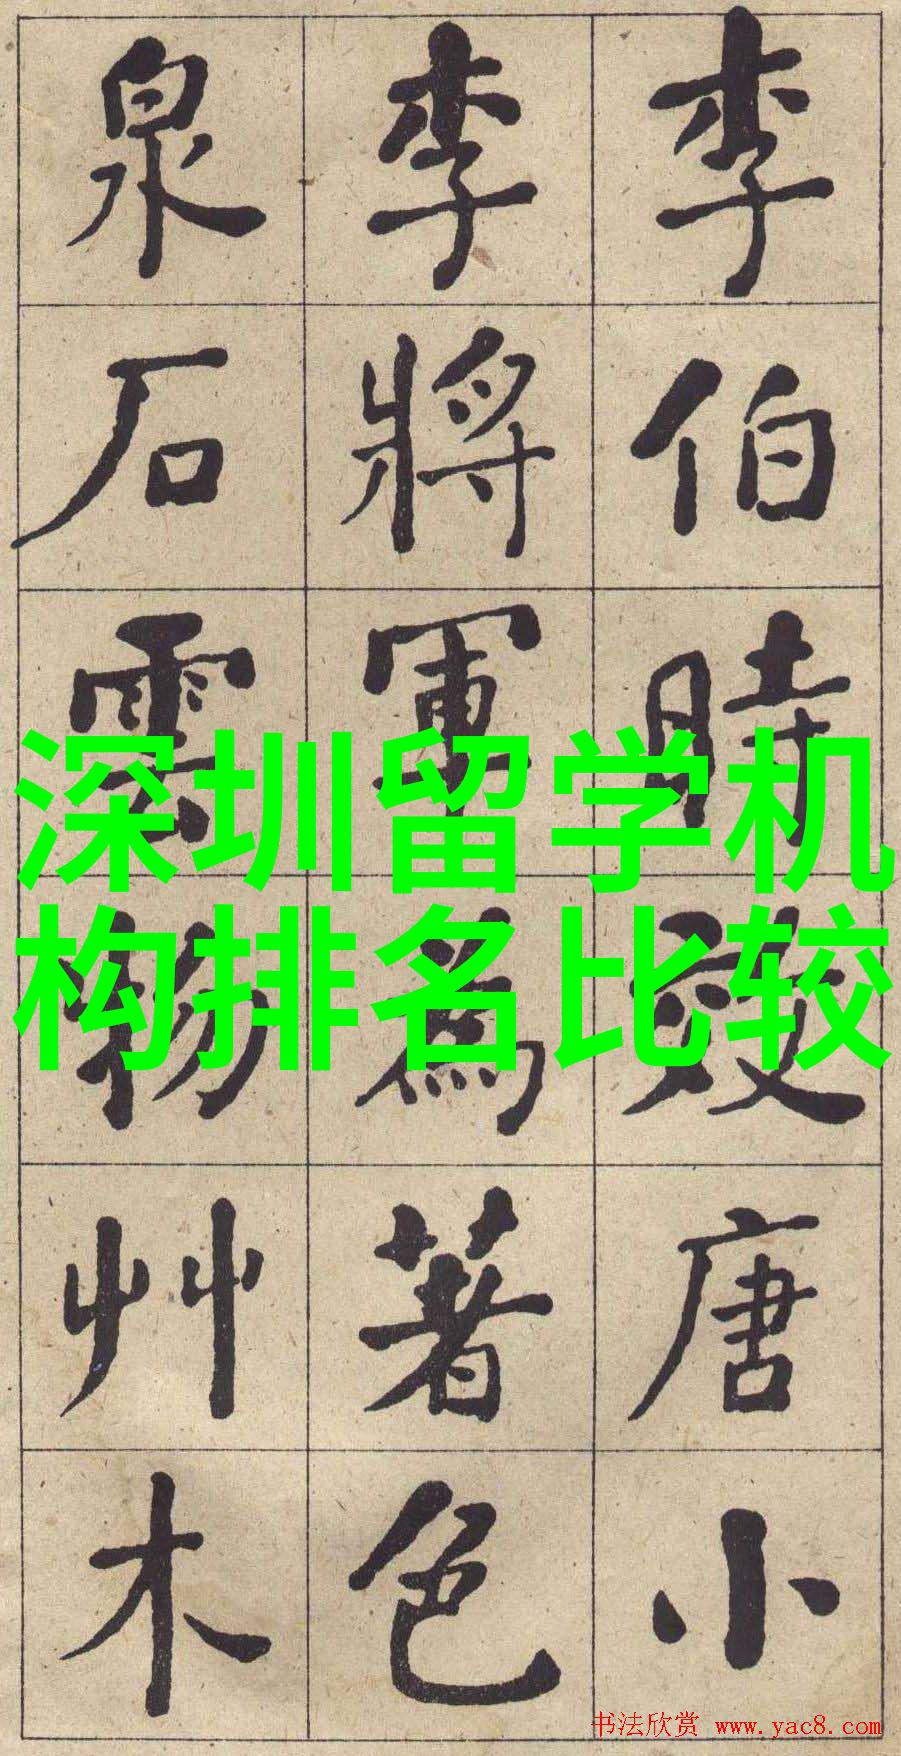 李伯時效唐小
李將軍為著色
泉石雲物艸木
深圳留学机
构排名比较
书法欣赏 www.yac8.com